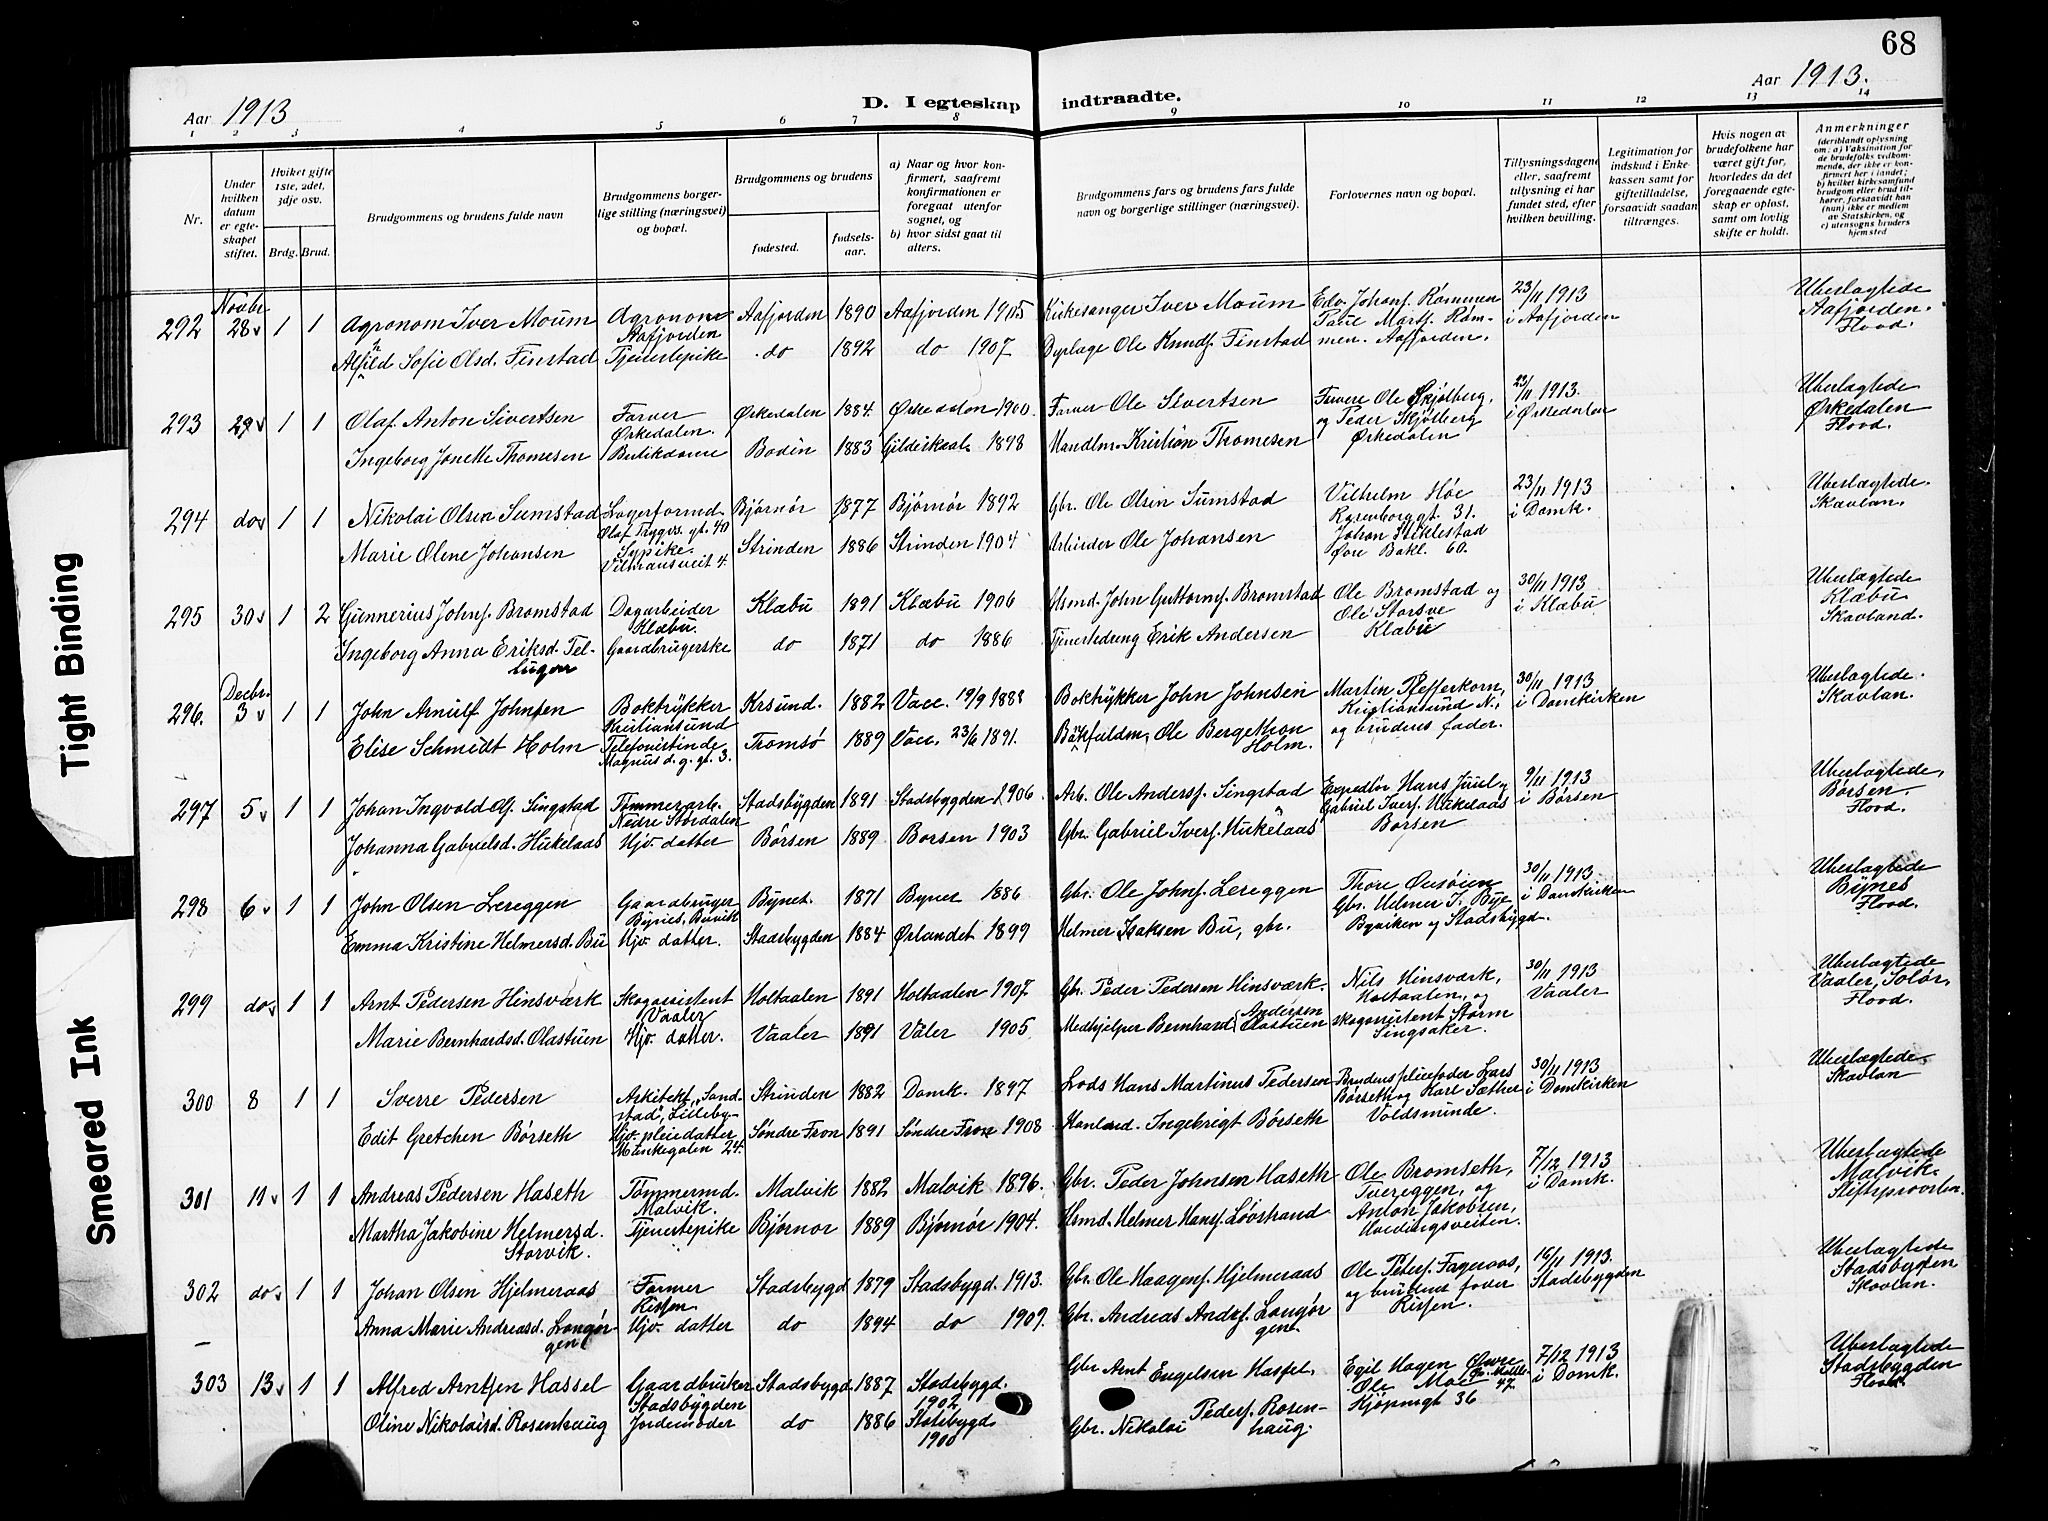 68
Aar 1913
D. I egteskap indtraadte.
Aar 1913.
1 2 3 4 5 6 7 8 9 10 11 12 13 14
Nr.
Under hvilken datum er egteskapet stiftet.
Hviket gifte 1ste, 2det, 3dje osv.
Brdg. Brud.
Brudgommens og brudens fulde navn
Brudgommens borgerlige stilling (næringsvei) og bopæl.
Brudgommens og brudens
fødested.
fødselsaar.
a) Naar og hvor konfirmert, saafremt konfirmationen er foregaat utenfor sognet, og
b) hvor sidst gaat til alters.
Brudgommens fars og brudens fars fulde navn og borgerlige stillinger (næringsvei).
Forlovernes navn og bopæl.
Tillysningsdagene eller, saafremt tillysning ei har fundet sted, efter hvilken bevilling.
Legitimation for indskud i Enkekassen samt for giftetilladelse, forsaavidt saadan tiltrænges.
Hvis nogen av brudefolkene har været gift før, hvorledes da det foregaaende egteskap er opløst, samt om lovlig skifte er holdt.
Anmerkninger (deriblandt oplysning om: a) Vaksination for de brudefolks vedkommende, der ikke er konfirmert her i landet; b) hvilket kirkesamfund brudgom eller brud tilhører, forsaavidt han (hun) ikke er medlem av Statskirken, og c) utensogns bruders hjemsted
Novbr.
292 28 1 1 Agronom Iver Moum Agronom Aafjorden Aafjorden 1890 Aafjorden 1905 Kirkesanger Iver Moum Edv. Johans. Rømmen Paul Marts. Røm- 23/11 1913 i Aafjorden Uberlagtede Aafjorden. Flood.
Alfhild Sofie Olsd. Finstad Tjenestepike do 1892 do 1907 Dyrlæge Ole Knuds. Finstad men. Aafjorden.
293 29 1 1 Olaf Anton Sivertsen Farver Ørkedalen. Ørkedalen 1884. Ørkedalen 1900. Farver Ole Sivertsen Farvere Ole Skjølberg, og Peder Skjølberg 23/11 1913. i Ørkedalen Uberlagtede Ørkedalen Flood.
Ingeborg Jonette Thomesen Butikdame Bodin 1883 Gildeskaal. 1898 Handlm. Kristian Thomesen Ørkedalen
294 do 1 1 Nikolai Olsen Sumstad Lagerformd. Olaf Tryggvs. gt. 40 Bjørnør 1877 Bjørnør 1892 Gbr. Ole Olsen Sumstad Vilhelm Høe Rosenborggt. 31. 23/11 1913 i Domk. Uberlagtede. Skavlan.
Marie Olene Johansen Sypike. Vilmansveit 4. Strinden 1886 Strinden 1904 Arbeider Ole Johansen Johan Stiklestad Øvre Bakl. 60.
295 30 1 2 Gunnerius Johns. Bromstad Dagarbeider Klæbu. Klæbu 1891 Klæbu 1906 Husmd. John Guttorms. Bromstad Ole Bromstad og Ole Storsve 30/11 1913 i Klæbu Uberlagtede Klæbu Skavland.
Ingeborg Anna Eriksd. Tel- Gaardbrugerske do 1871 do 1886 Erik Andersen Klæbu
Decbr.
296. 3 1 1 John Arnulf Johnsen Boktrykker Kristiansund Krsund. 1882 Vacc. 19/9 1888 Boktrykker John Johnsen Martin Pfefferkorn, Kristiansund N., 30/11 1913 i Domkirken Uberlagtede. Skavlan.
Elise Schmidt Holm Telefonistinde Magnus d. g. gt. 3. Tromsø 1889 Vacc. 23/6 1891. Ole Bergethon Holm. og brudens fader.
297 5 1 1 Johan Ingvald Ols. Singstad Tømmerarb. Nedre Stordalen Stadsbygden 1891 Stadsbygden 1906. Arb. Ole Anders. Singstad Expeditør Hans Juul og Gabriel Ivers. Hukelaas 9/11 1913 i Børsen Uberlagtede, Børsen. Flood.
Johanna Gabrielsd. Hukelaas Hjv. datter Børsen 1889 Børsen 1903 Gbr. Gabriel Ivers. Hukelaas Børsen
298 6 1 1 John Olsen Lereggen Gaardbruger Bynes. Buvik Bynes. 1871 Bynes 1886 Gbr. Ole Johns. Lereggen Thore Øusøien Gbr. Helmer J. Bye 30/11 1913 i Domkirken Uberlagtede Bynes Flood.
Emma Kristine Helmersd. Bu Hjv. datter. Stadsbygden 1884 Ørlandet 1899 Helmer Isaksen Bu, gbr. og Stadsbygd.
299 do 1 1 Arnt Pedersen Hinsværk Skogassistent Vaaler Holtaalen 1891 Holtaalen 1907. Gbr. Peder Pedersen Hinsværk. Nils Hinsværk, Holtaalen, og 30/11 1913 Vaaler Uberlagtede Vaaler, Solør, Flood.
Marie Bernhardsd. Olastuen Hjv. datter. Vaaler 1891 Våler 1905. Medhjelper Bernhard Andersen Olastuen Skogassistent Storm Singsaker.
300 8 1 1 Sverre Pedersen Arkitekt, Sandstad, Lilleby- Strinden 1882 Domk. 1897 Lods Hans Martinus Pedersen Brudens pleiefader Lars Børseth og Karl Sæther 30/11 1913 i Domkirken Uberlagtede. Skavlan
Edit Gretchen Børseth Hjv. pleiedatter Munkegaten 24. Søndre Fron 1891 Søndre Fron 1908 Ingebrigt Børseth Voldsminde.
301 11 1 1 Andreas Pedersen Haseth Tømmermd. Malvik. Malvik 1882 Malvik 1896. Gbr. Peder Johnsen Haseth Ole Bromseth, Tvereggen, og 7/12 1913 i Domk. Uberlagtede Malvik. Stiftsprovsten.
Martha Jakobine Helmersd. Storvik. Tjenestepike Bjørnør 1889 Bjørnør 1904. Husmd. Helmer Hans. Løvstrand Anton Jakobsen,
302 do 1 1 Johan Olsen Hjelmeraas Farmer Rissen. Stadsbygd 1879 Stadsbygd. 1913. Gbr. Ole Haagens. Hjelmeraas Ole Peters. Fageraas, og brudens fader 16/11 1913. Stadsbygden Uberlagtede Stadsbygden Skavlan.
Anna Marie Andreasd. Langørgen Hjv. datter do 1894 do 1909. Gbr. Andreas Ands. Langørgen. Rissen.
303 13 1 1 Alfred Arntsen Hassel Gaardbruker Stadsbygden Stadsbygd 1887 Stadsbygd. 1902 Gbr Arnt Engelsen Hassel. Egil Hagen Øvre Møllebg. 47. Ole Moe 7/12 1913 i Domk. Uberlagtede Stadsbygden Flood.
Oline Nikolaisd. Rosenhaug Jordemoder do 1886 Stadsbygd 1900 Gbr. Nikolai Peders. Rosenhaug. Kjøpmgt 36
Tight Binding
Smeared Ink